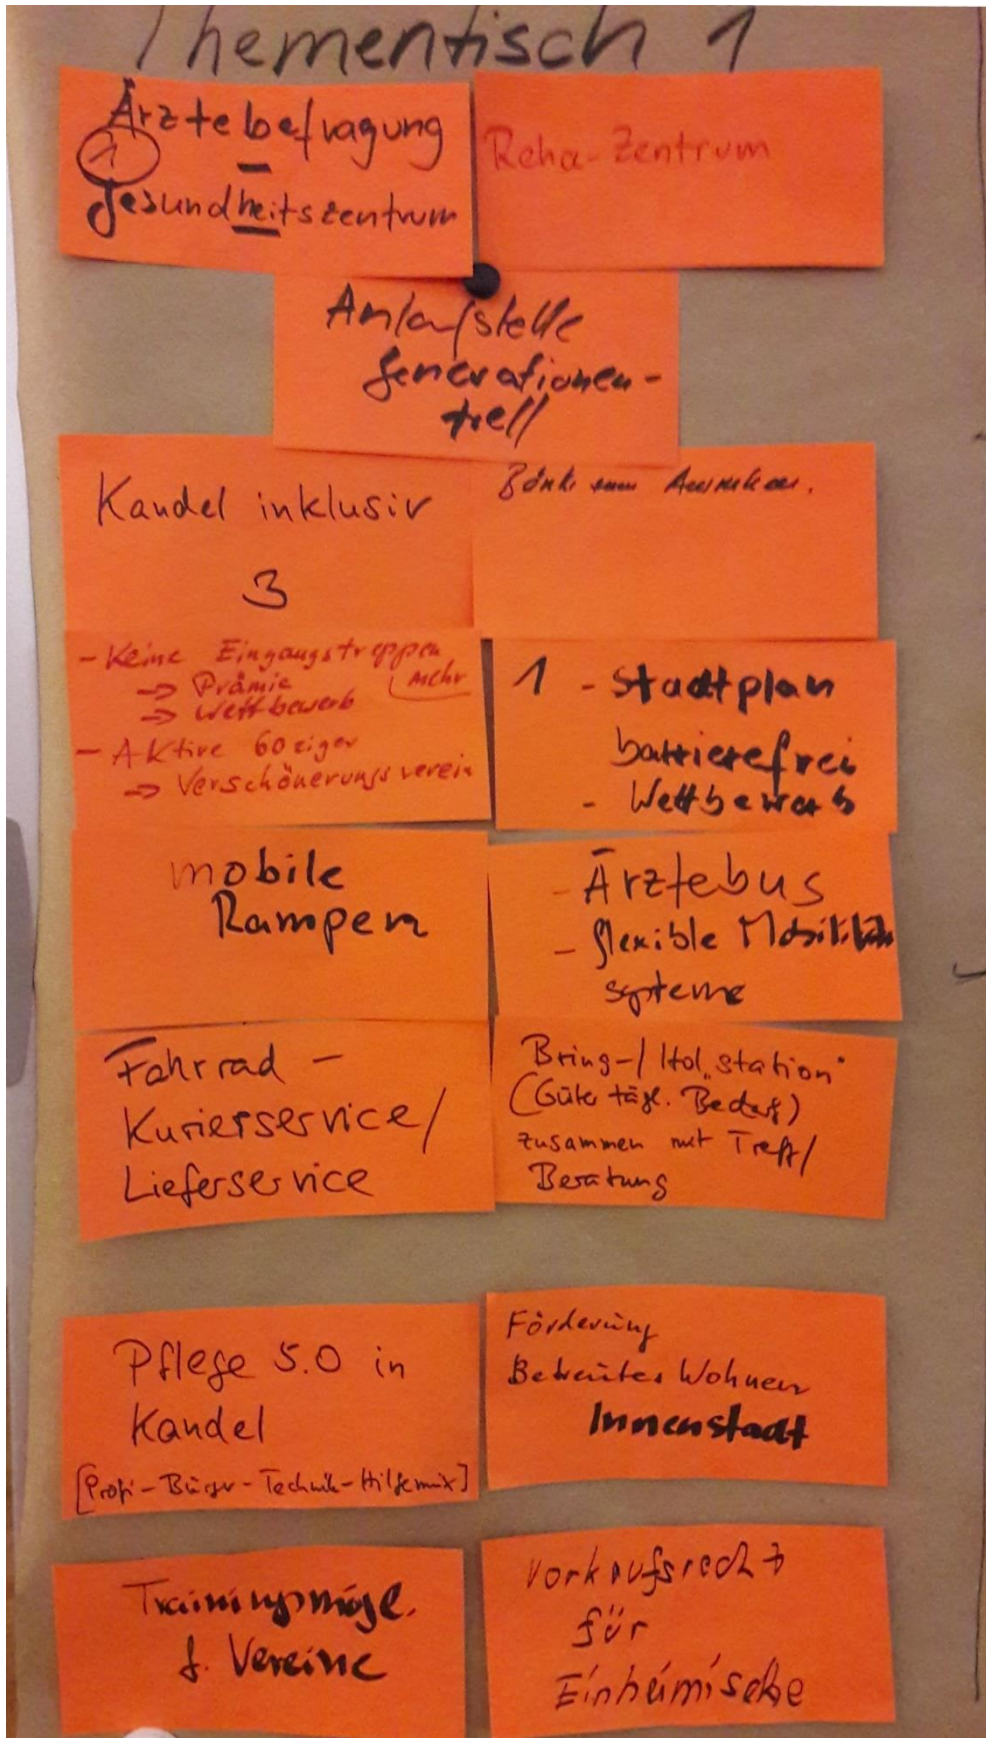 Thementisch 1
Ärztebefragung
1
Gesundheitszentrum
Reha-Zentrum
Anlaufstelle
Generationen-
treff
Kandel inklusiv
3
Bänke zum Ausruhen.
- Keine Eingangstreppen
mehr
→ Prämie
→ Wettbewerb
- Aktive 60ziger
→ Verschönerungsverein
1 - Stadtplan
barrierefrei
- Wettbewerb
mobile
Rampen
- Ärztebus
- flexible Mobilitäts
systeme
Fahrrad -
Kurierservice/
Lieferservice
Bring-/Hol„station"
(Güter tägl. Bedarf)
zusammen mit Treff/
Beratung
Pflege 5.0 in
Kandel
[Profi-Bürger-Technik-Hilfemix]
Förderung
Betreutes Wohnen
Innenstadt
Trainingsmögl.
f. Vereine
Vorkaufsrecht
für
Einheimische